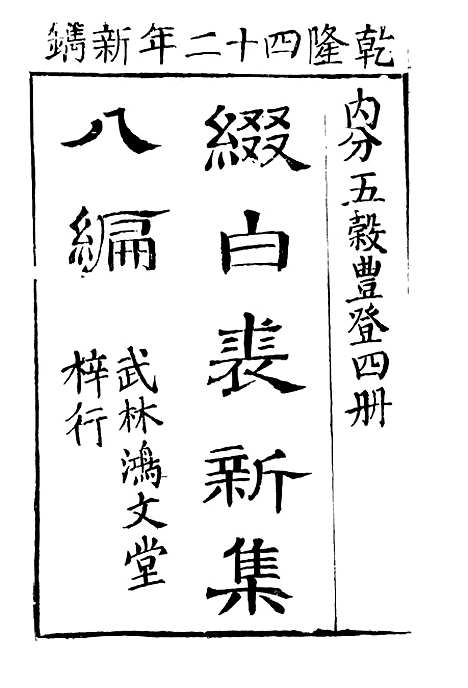 乾隆四十二年新鐫
内分五穀豊登四册
綴白裘新集
八編
武林鴻文堂
梓行